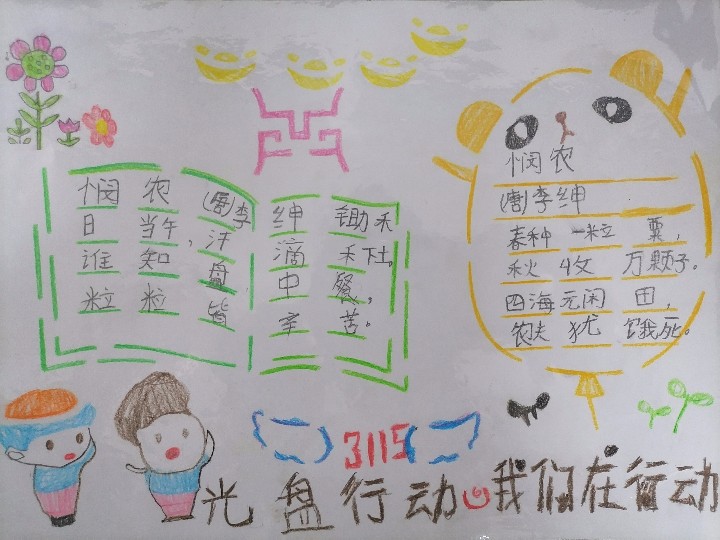 悯农(唐)李绅 锄禾
日当午,汗滴禾下土。
谁知盘中餐,
粒粒皆辛苦。
悯农
(唐)李绅
春种一粒粟,
秋收万颗子。
四海无闲田,
农夫犹饿死。
3115
光盘行动 我们在行动